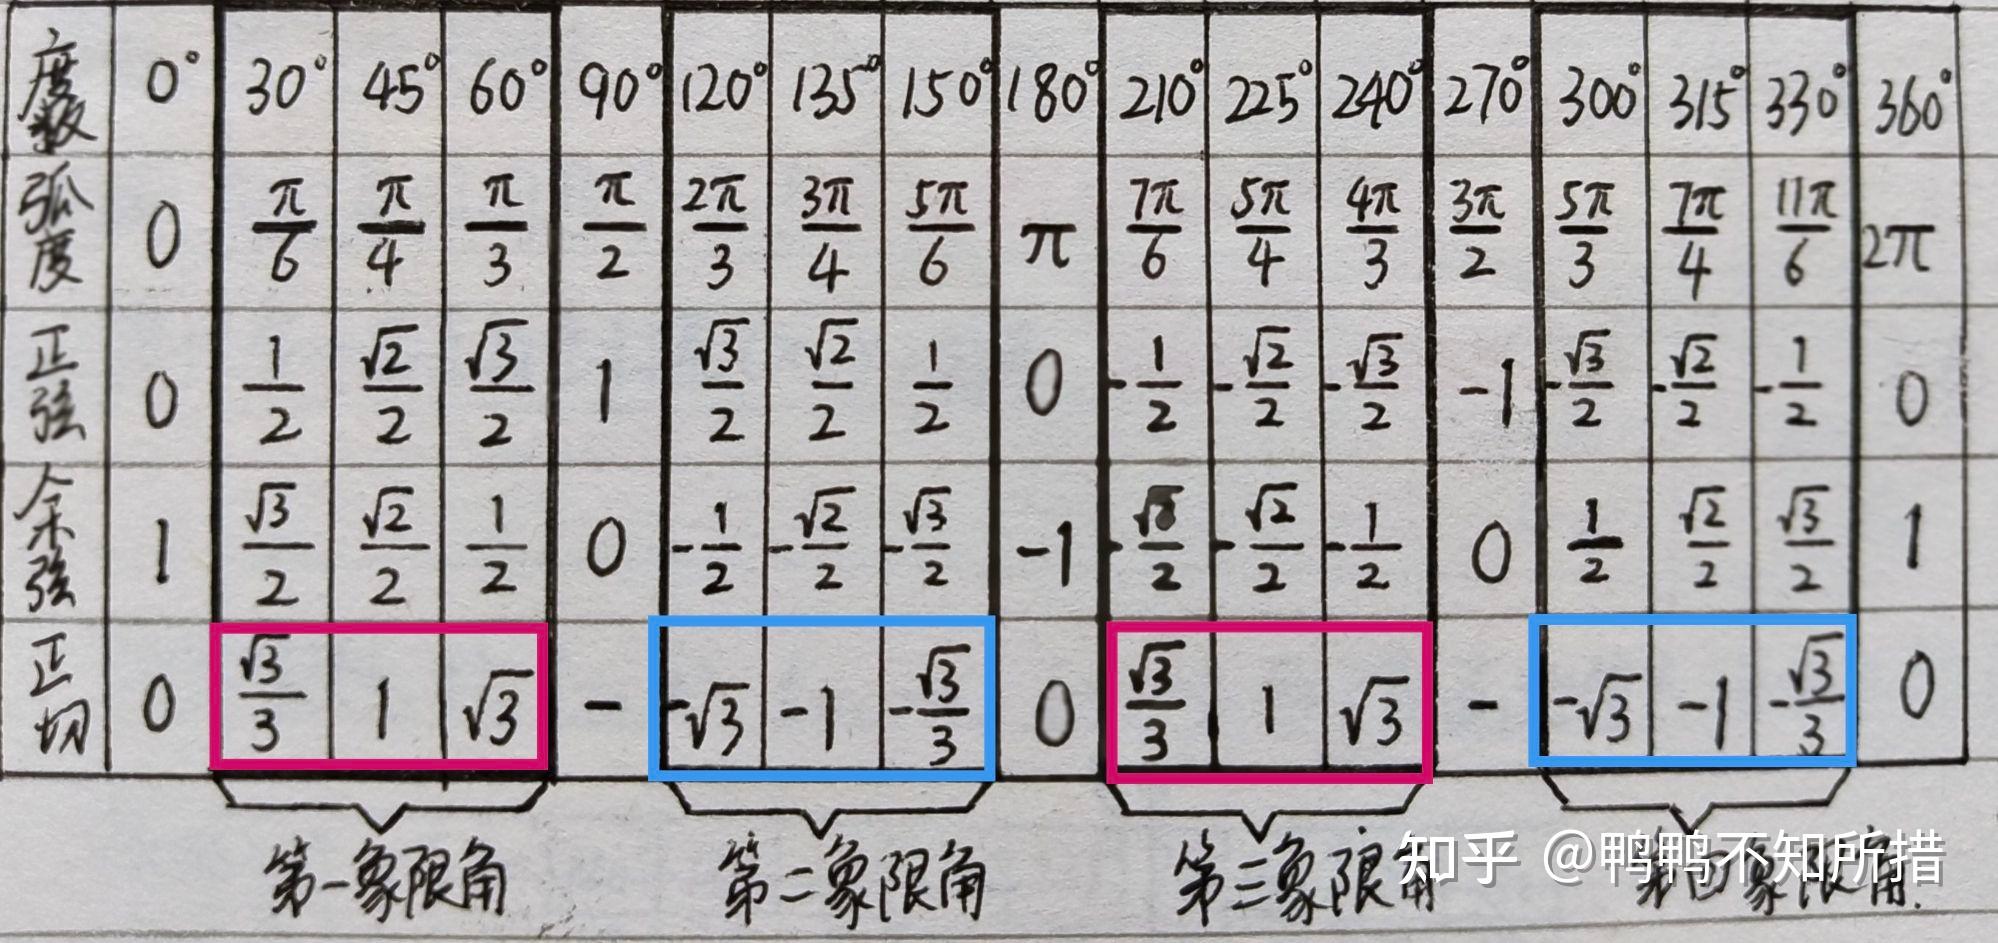 度数 0° 30° 45° 60° 90° 120° 135° 150° 180° 210° 225° 240° 270° 300° 315° 330° 360°
弧度 0 π/6 π/4 π/3 π/2 2π/3 3π/4 5π/6 π 7π/6 5π/4 4π/3 3π/2 5π/3 7π/4 11π/6 2π
正弦 0 1/2 √2/2 √3/2 1 √3/2 √2/2 1/2 0 -1/2 -√2/2 -√3/2 -1 -√3/2 -√2/2 -1/2 0
余弦 1 √3/2 √2/2 1/2 0 -1/2 -√2/2 -√3/2 -1 -√3/2 -√2/2 -1/2 0 1/2 √2/2 √3/2 1
正切 0 √3/3 1 √3 - -√3 -1 -√3/3 0 √3/3 1 √3 - -√3 -1 -√3/3 0
第一象限角 第二象限角 第三象限角 第四象限角.
知乎 @鸭鸭不知所措